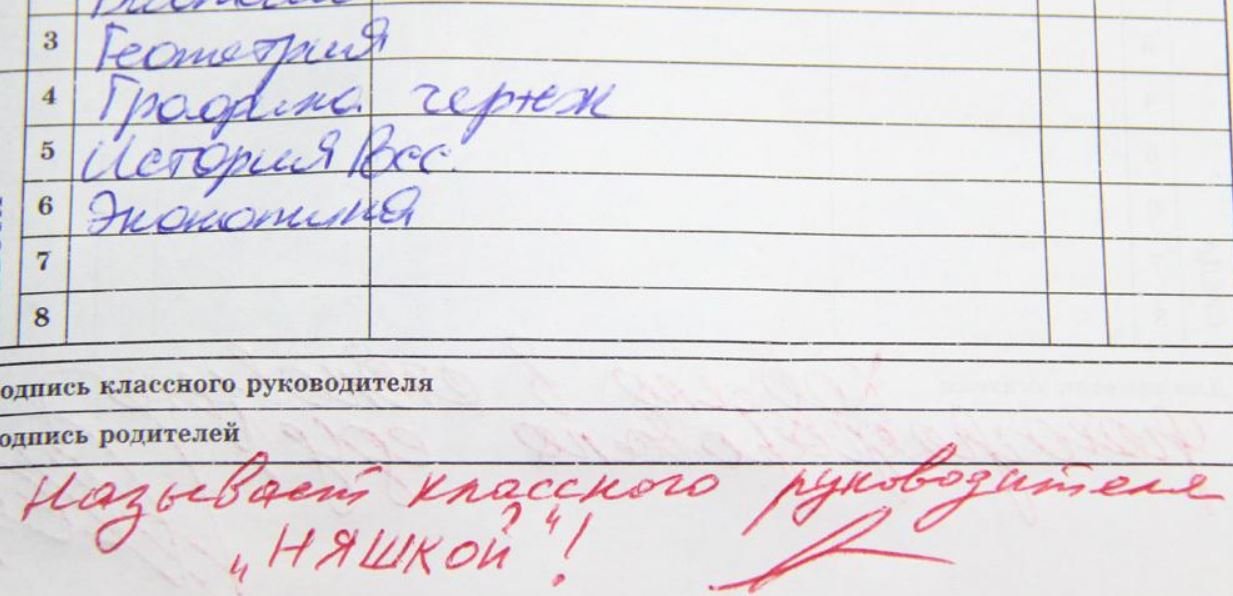 3 Геометрия
4 Графика чертеж
5 История Всс.
6 Экономика
7
8
одпись классного руководителя
одпись родителей
Называет классного руководителя
„НЯШКОЙ"!